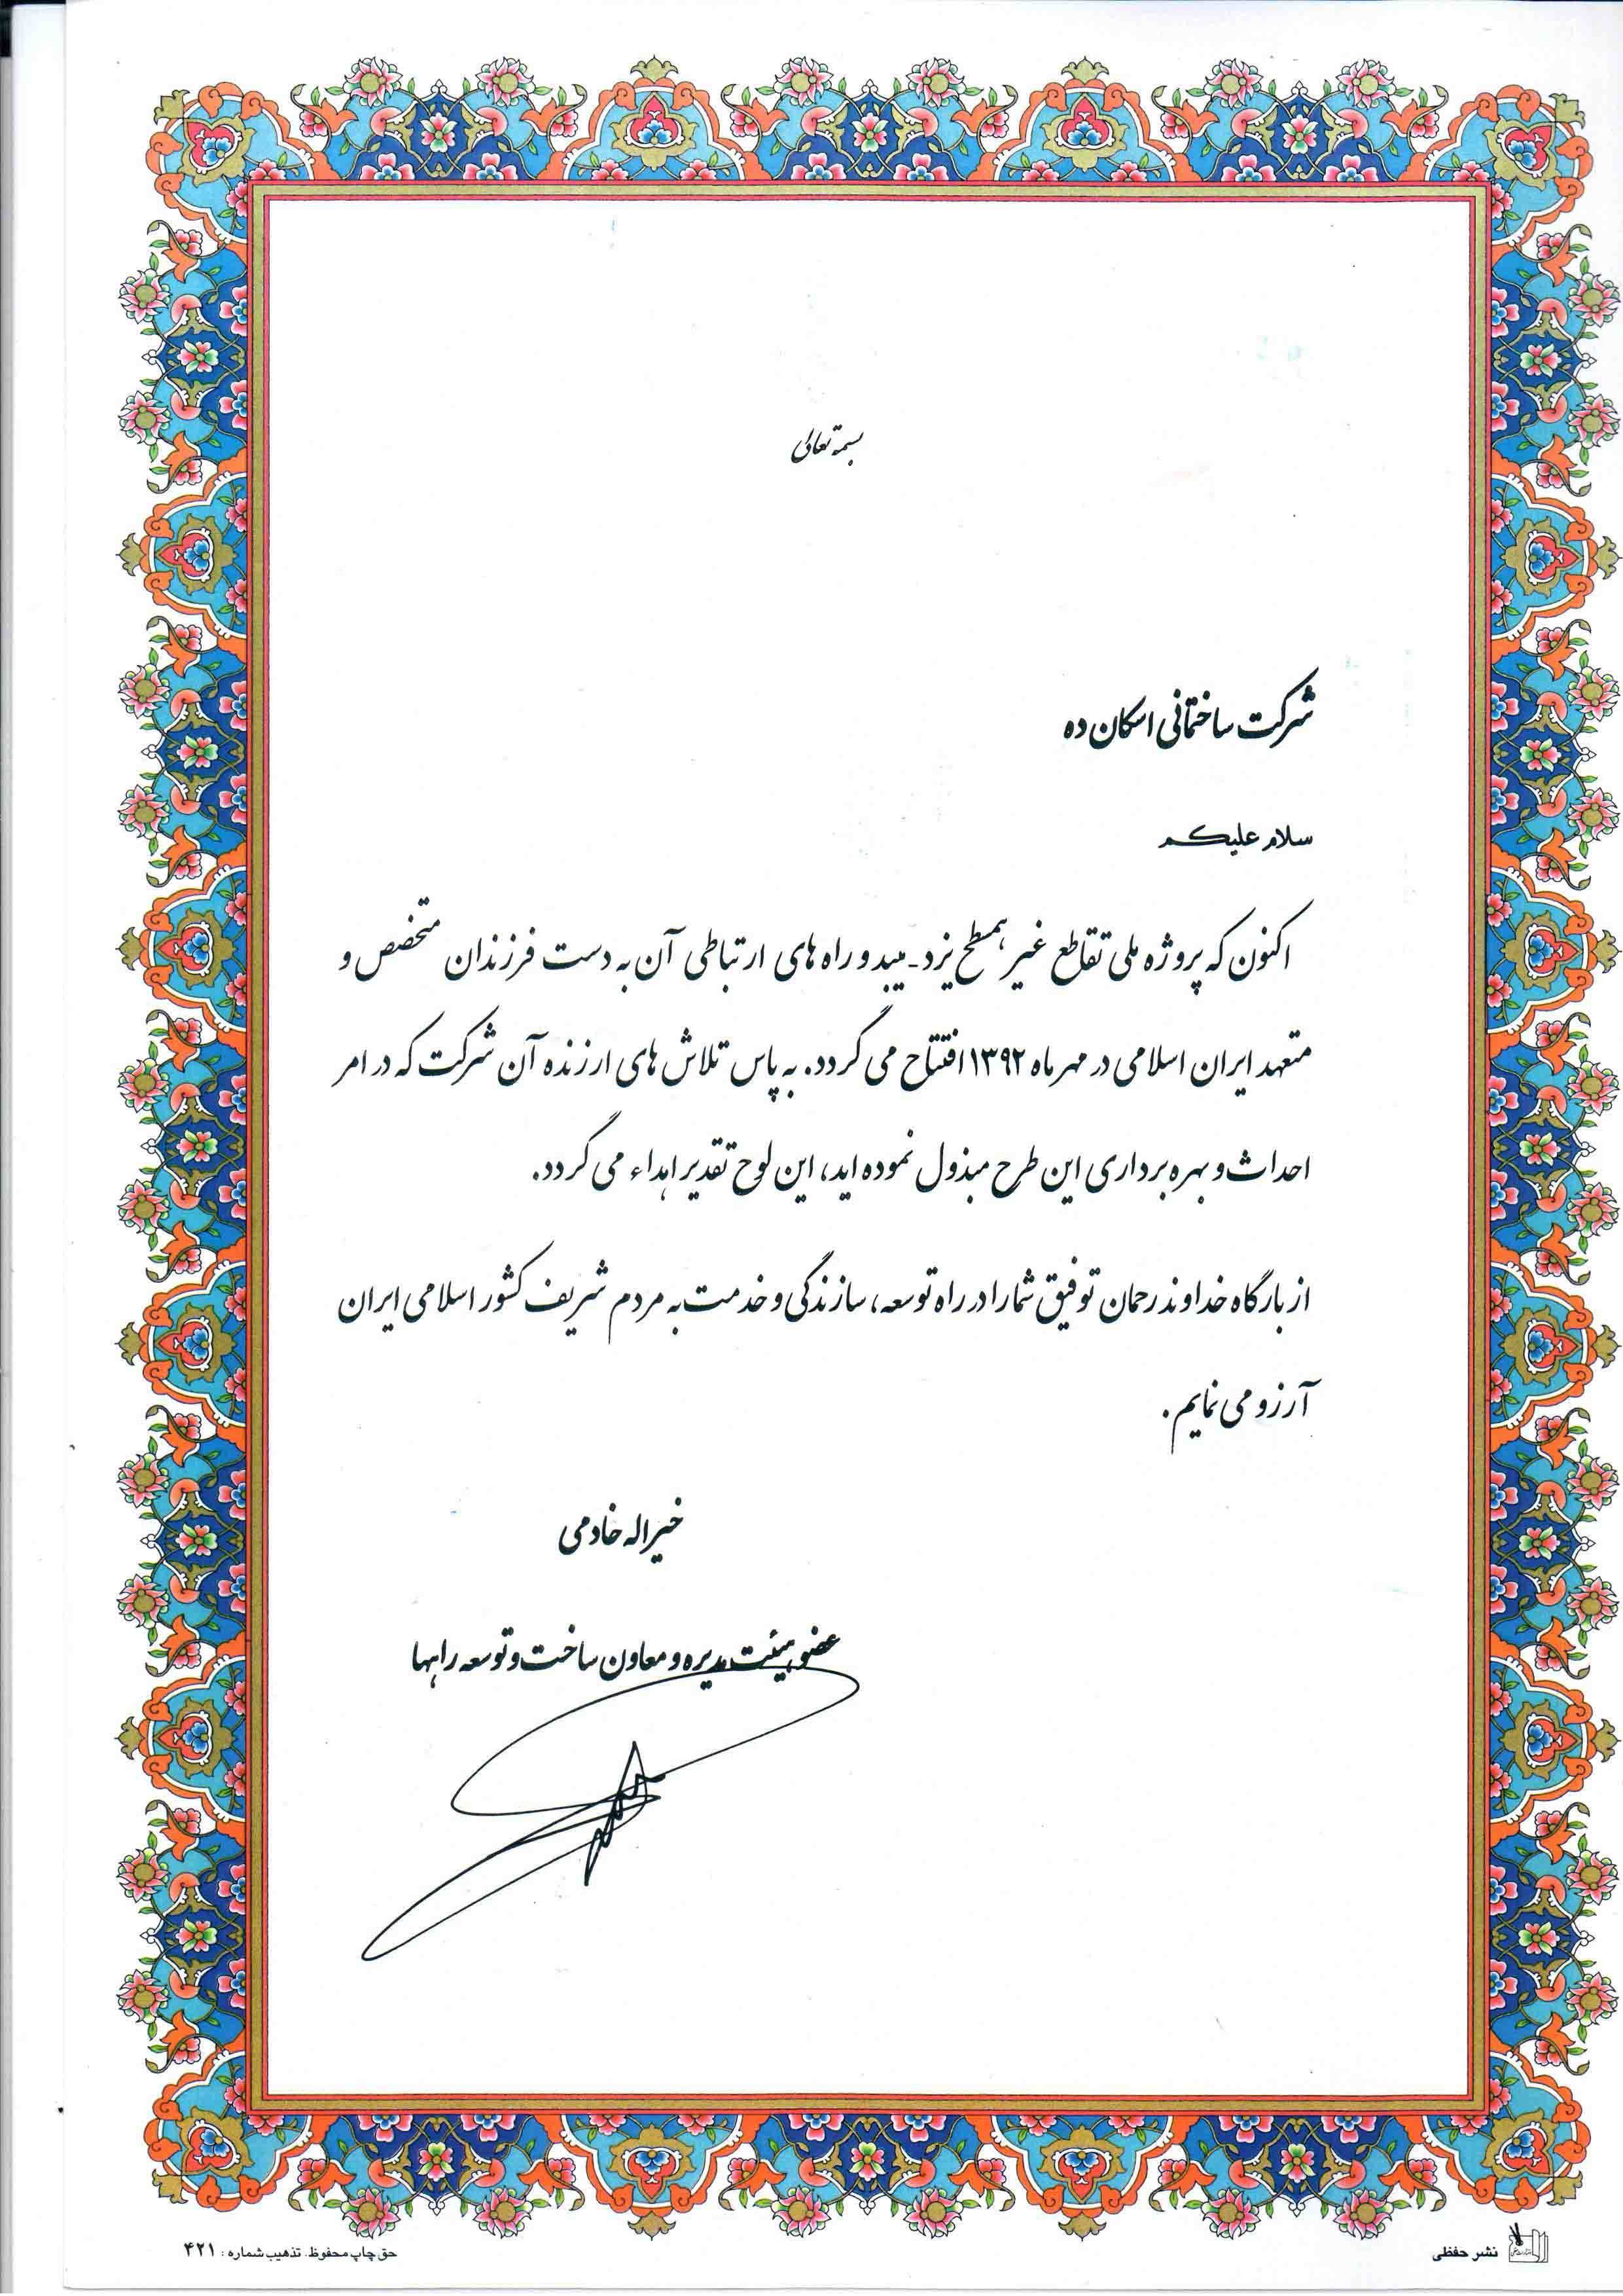 بسمه تعالی
شرکت ساختمانی اسکان ده
سلام علیکم
اکنون که پروژه ملی تقاطع غیر همسطح یزد - میبد و راه های ارتباطی آن به دست فرزندان متخصص و
متعهد ایران اسلامی در مهر ماه ۱۳۹۲ افتتاح می گردد. به پاس تلاش های ارزنده آن شرکت که در امر
احداث و بهره برداری این طرح مبذول نموده اید، این لوح تقدیر اهداء می گردد.
از بارگاه خداوند رحمان توفیق شما را در راه توسعه، سازندگی و خدمت به مردم شریف کشور اسلامی ایران
آرزو می نمایم.
خیراله خادمی
عضو هیئت مدیره و معاون ساخت و توسعه راهها
نشر حفظی
حق چاپ محفوظ. تذهیب شماره : ۴۲۱